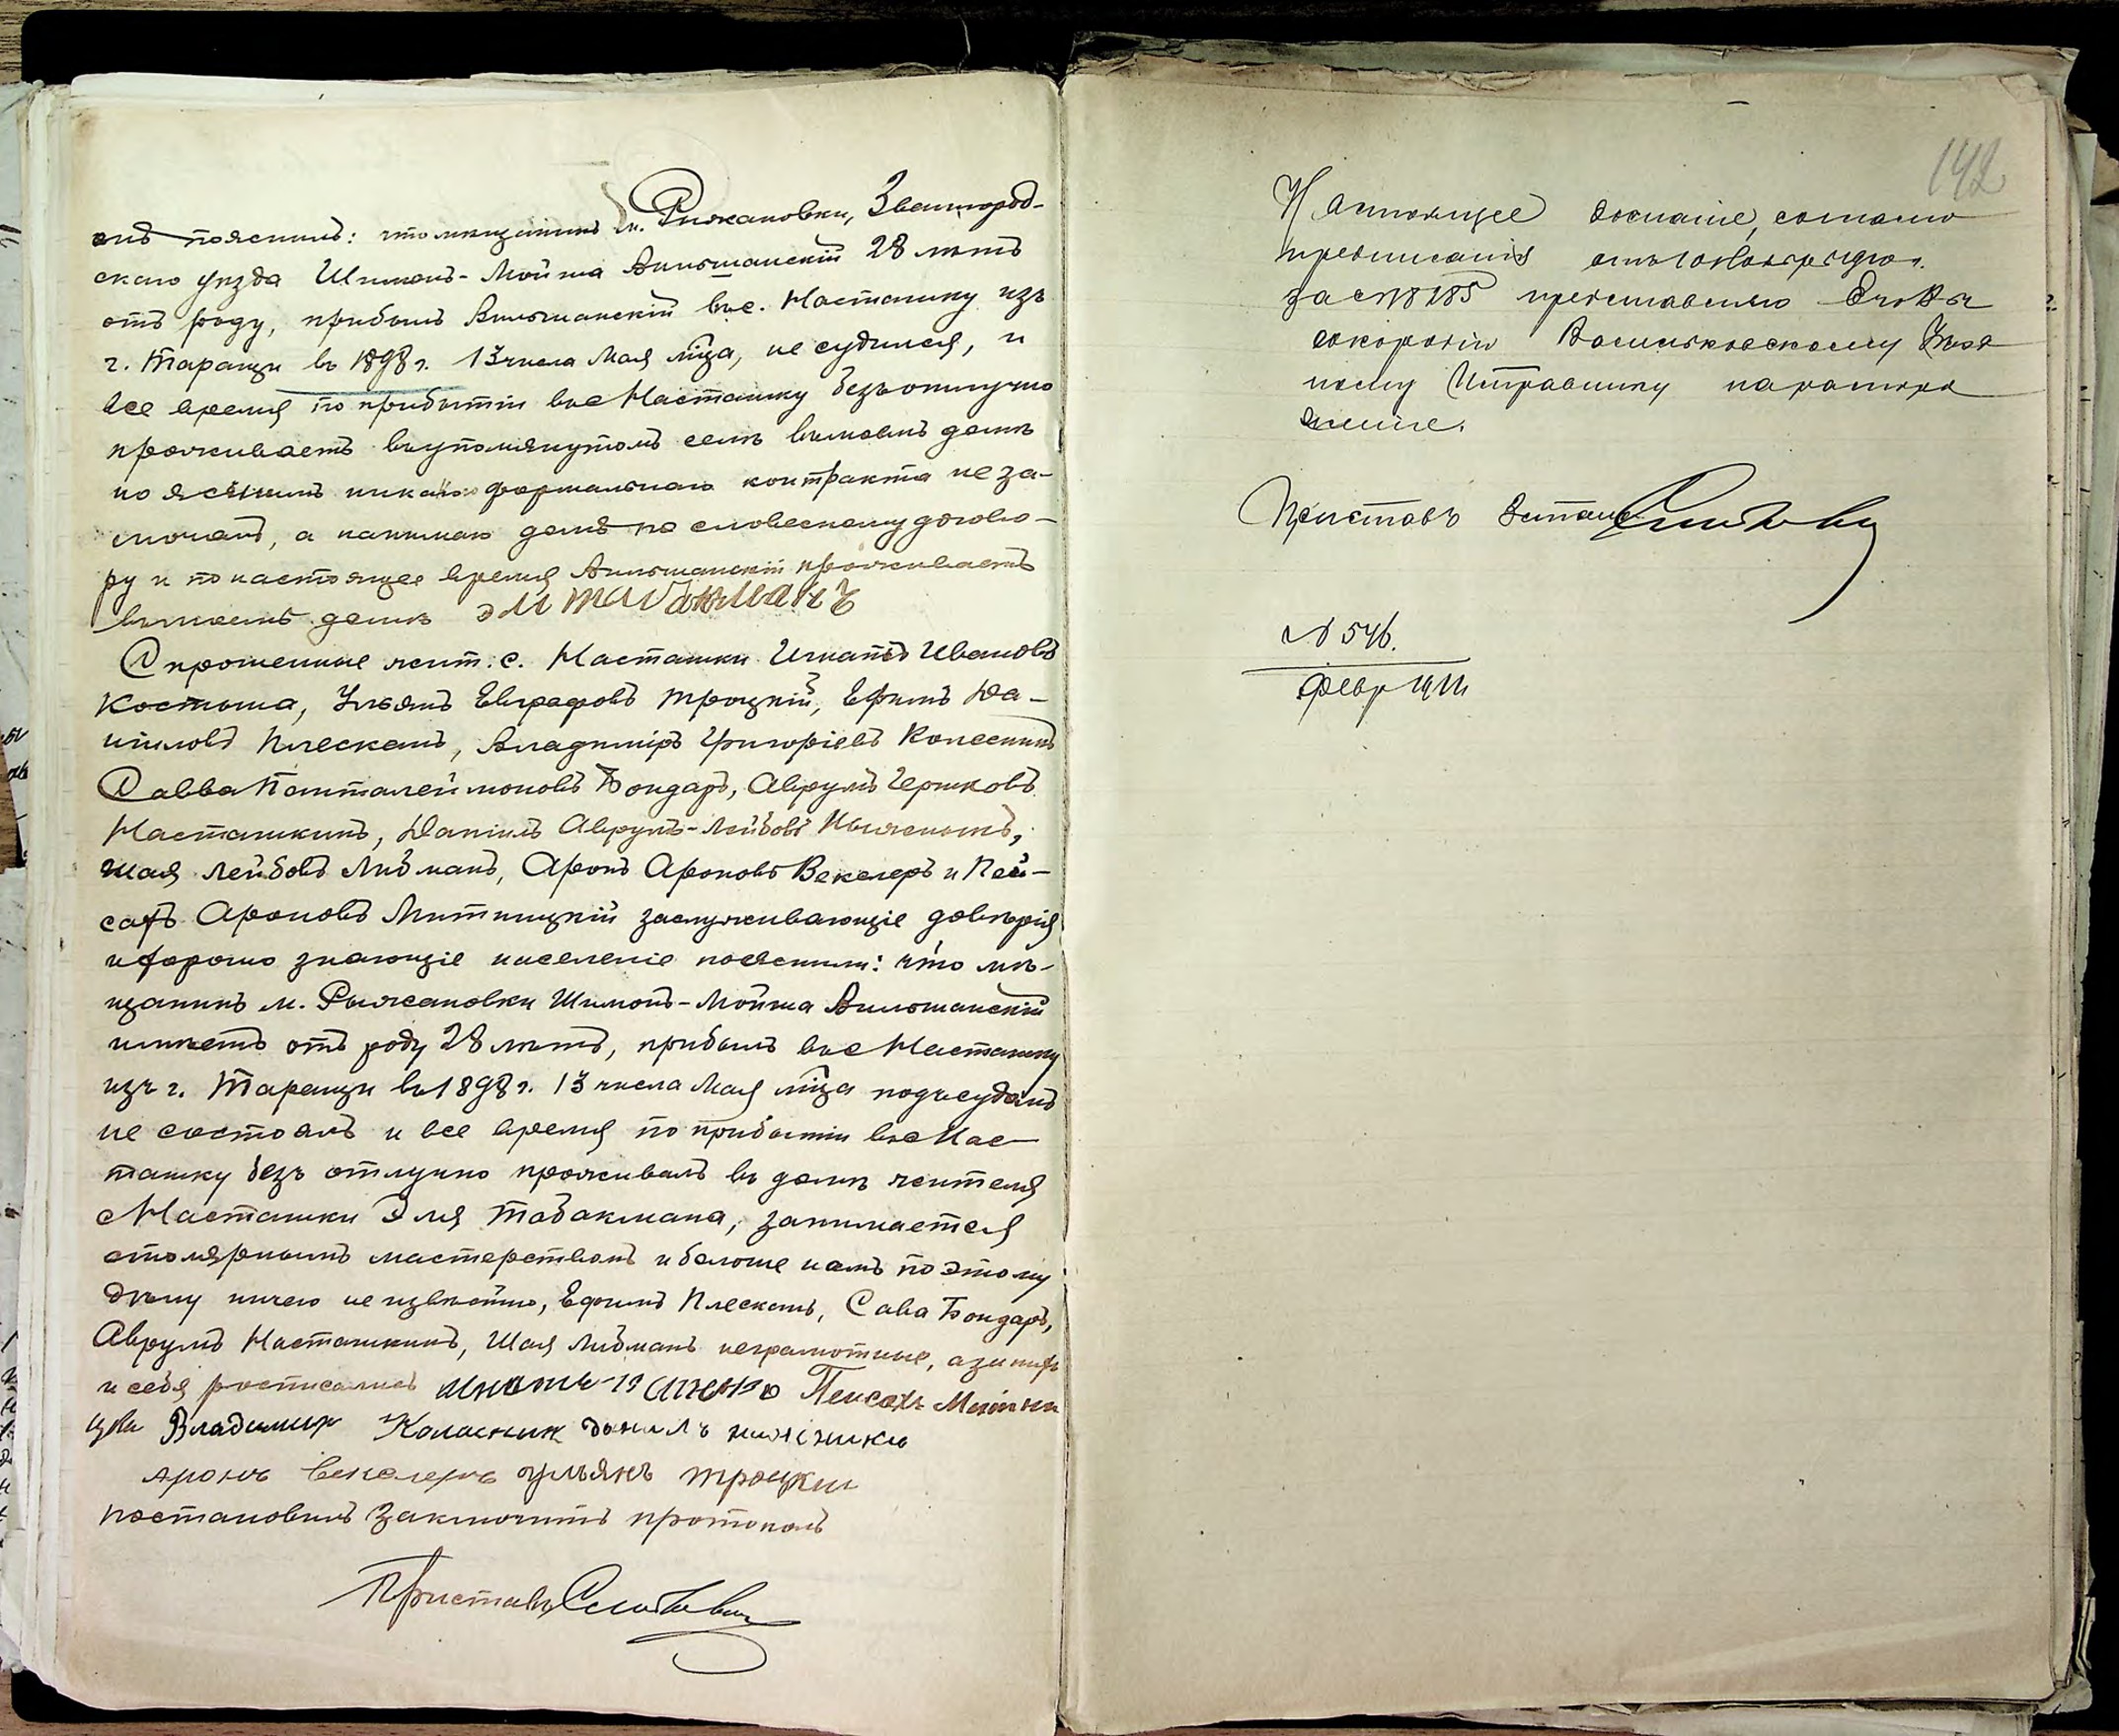 онъ пояснилъ: что мѣщанинъ м. Рижановки, Звенигород-
скаго уѣзда Шимонъ-Мойша Вильшанскій 28 лѣтъ
отъ роду, прибылъ Вильшанскій въ с. Насташку изъ
г. Таращи въ 1898 г. 13 числа Мая мѣца, не судился, и
все время по прибытіи въ с Насташку безъотлучно
проживаетъ въ упомянутомъ селѣ въ моемъ домѣ
но я съ нимъ никакого формальнаго контракта не за-
ключалъ, а нанимаю домъ по словесному догово-
ру и по настоящее время Вильшанскій проживаетъ
въ моемъ домѣ Эли Табакманъ
Спрошенные жит. с. Насташки Игнатъ Ивановъ
Костюша, Ульянъ Евграфовъ Троцкій, Ефимъ Да-
ниловъ Плесканъ, Владиміръ Григоріевъ Колесникъ
Савва Панталеймоновъ Бондаръ, Аврумъ Гершковъ
Насташкинъ, Даніилъ Аврумъ-Лейбовъ
Шая Лейбовъ Либманъ, Аронъ Ароновъ Векслеръ и Пей-
сахъ Ароновъ Митницкій заслуживающіе довѣрія
и хорошо знающіе населеніе пояснили: что мѣ-
щанинъ м. Рыжановки Шимонъ-Мойша Вильшанскій
имѣетъ отъ роду 28 лѣтъ, прибылъ въ с Насташку
изъ г. Таращи въ 1898 г. 13 числа Мая мѣца подъ судомъ
не состоялъ и все время по прибытіи въ с Нас-
ташку безъ отлучно проживалъ въ домѣ жителя
с Насташки Эля Табакмана, занимается
столярнымъ мастерствомъ и больше намъ по этому
дѣлу ничего не извѣстно, Ефимъ Плесканъ, Сава Бондаръ,
Аврумъ Насташкинъ, Шая Либманъ неграмотные, а за нихъ
и себя росписались Пейсахъ Митни
цки Владимир Коласник данилъ
аронъ векслеръ ульянъ троцки
постановилъ заключить протоколъ
Приставъ
142
Настоящее дознаніе, согласно
предписанія отъ
за № 8285 представляю Его Вы
сокородію Васильковскому Уѣзд
ному Исправнику на распоря
женіе.
Приставъ 2 стана
№ 546.
Февр